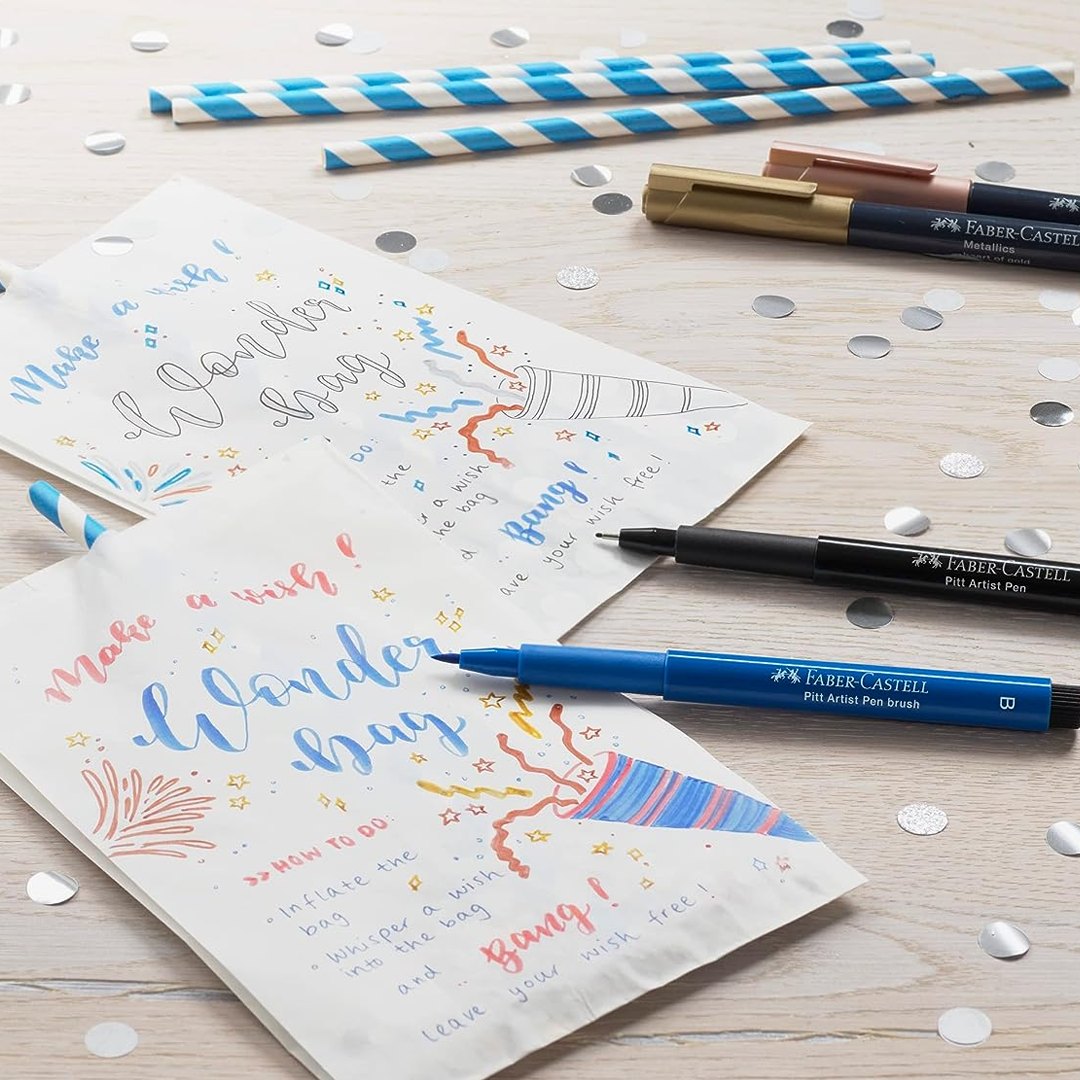 Make a wish!
Wonder
bag
DO:
the
a wish
he bag
d
Bang!
ave your wish free!
Make a wish!
Wonder
bag
>>HOW TO DO:
◦ Inflate the
bag
◦ Whisper a wish
into the bag
and .. Bang!
leave your wish free!
FABER-CASTELL
Metallics
heart of gold
FABER-CASTELL
Pitt Artist Pen
FABER-CASTELL
Pitt Artist Pen brush
B